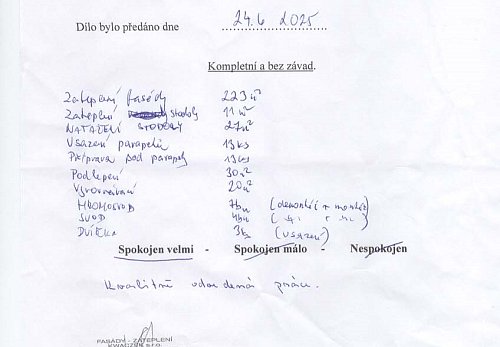 Dílo bylo předáno dne 24.6 2025
Kompletní a bez závad.
Zateplení fasády 223 m²
Zateplení stodoly 11 m²
NATAŽENÍ STODOLY 27 m²
Vsazení parapetů 13 ks
Příprava pod parapety 13 ks
Podlepení 30 m²
Vyrovnávání 20 m²
HROMOSVOD (demontáž + montáž)
SVOD
DVÍŘKA 3ks (vsazení)
Spokojen velmi - Spokojen málo - Nespokojen
Kvalitně odvedená práce.
FASÁDY - ZATEPLENÍ